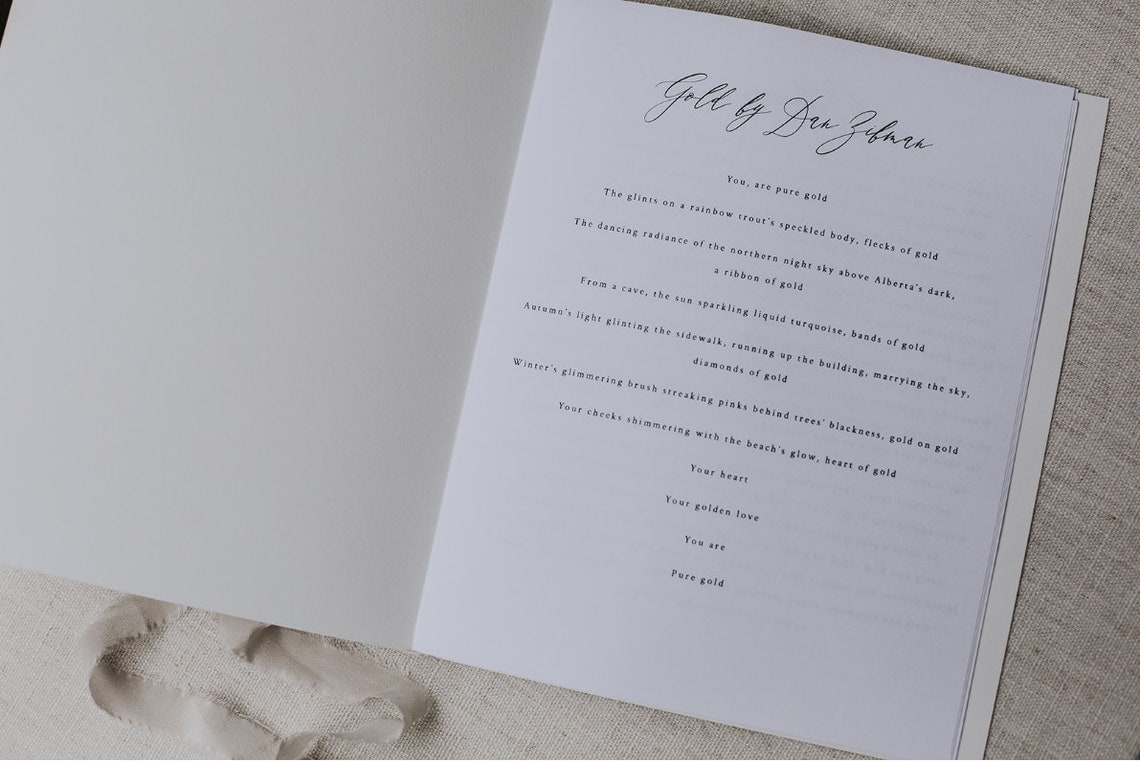 Gold by Dan Zibman
You, are pure gold
The glints on a rainbow trout's speckled body, flecks of gold
The dancing radiance of the northern night sky above Alberta's dark,
a ribbon of gold
From a cave, the sun sparkling liquid turquoise, bands of gold
Autumn's light glinting the sidewalk, running up the building, marrying the sky,
diamonds of gold
Winter's glimmering brush streaking pinks behind trees' blackness, gold on gold
Your cheeks shimmering with the beach's glow, heart of gold
Your heart
Your golden love
You are
Pure gold